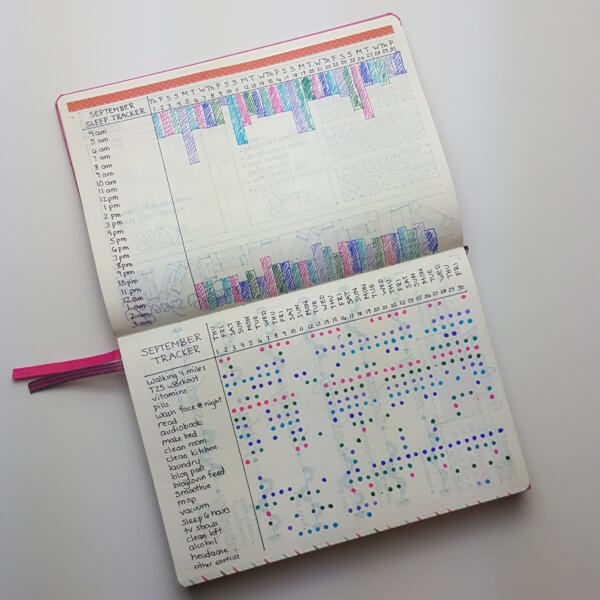 SEPTEMBER
SLEEP TRACKER
Th F S S M T W Th F S S M T W Th F S S M T W Th F S S M T W Th F
1 2 3 4 5 6 7 8 9 10 11 12 13 14 15 16 17 18 19 20 21 22 23 24 25 26 27 28 29 30
4 am
5 am
6 am
7 am
8 am
9 am
10 am
11 am
12 pm
1 pm
2 pm
3 pm
4 pm
5 pm
6 pm
7 pm
8 pm
9 pm
10 pm
11 pm
12 am
1 am
2 am
3 am
SEPTEMBER
TRACKER
THU FRI SAT SUN MON TUE WED THU FRI SAT SUN MON TUE WED THU FRI SAT SUN MON TUE WED THU FRI SAT SUN MON TUE WED THU FRI
1 2 3 4 5 6 7 8 9 10 11 12 13 14 15 16 17 18 19 20 21 22 23 24 25 26 27 28 29 30
walking 4 miles
T25 workout
vitamins
pills
wash face @ night
read
audiobook
make bed
clean room
clean kitchen
laundry
blog post
bloglovin feed
smoothie
mop
vacuum
sleep 6 hours
tv shows
clean loft
alcohol
headache
other exercise